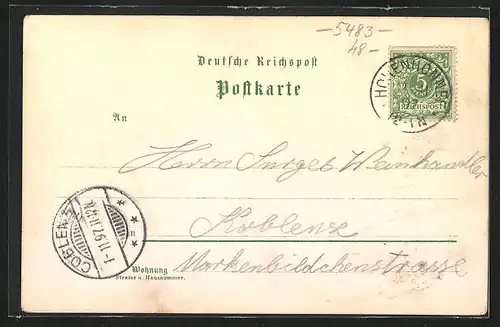 5483
48
Deutsche Reichspost
Postkarte
5
REICHSPOST
An
Herrn Surges Weinhandler
Koblenz
COBLENZ
1-11.97.11-12N.
Wohnung
Strasse u. Hausnummer.
Markenbildchenstrasse